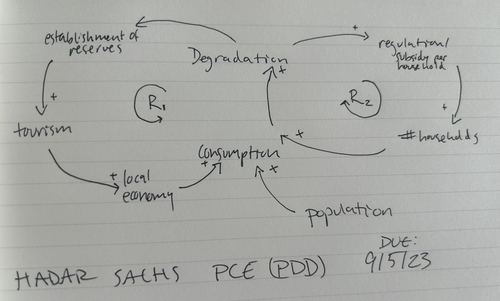 establishment of
reserves
Degradation
+
regulation/
subsidy per
household
+
R1
+
R2
+
tourism
+
# households
Consumption
+
+
+
+ local
economy
population
DUE:
9/5/23
HADAR SACHS PCE (PDD)